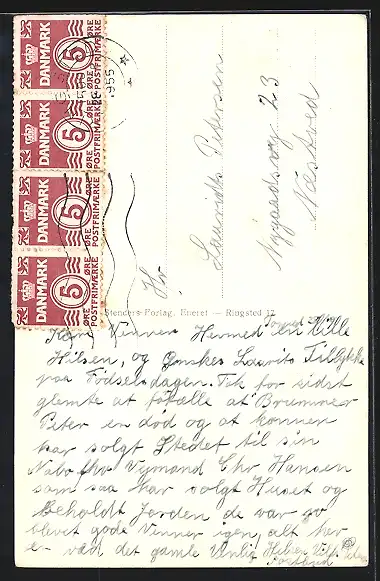 DANMARK 5 ØRE POSTFRIMÆRKE
DANMARK 5 ØRE POSTFRIMÆRKE
DANMARK 5 ØRE POSTFRIMÆRKE
DANMARK 5 ØRE POSTFRIMÆRKE
1955
Hr.
Laurits Petersen
23
Næstved
Stenders Forlag. Eneret — Ringsted 17
Kære Venner Hermed en lille
Hilsen, og Ønskes Laurits Tillykke
paa Fødselsdagen. Tak for sidst
glemte at fortælle at Brummer
Peter er død og at konen
har solgt Stedet til sin
Nabo Chr Hansen
som saa har solgt Huset og
beholdt Jorden de var go
blevet gode Venner igen, alt her
er ved det gamle Venlig Hilsen